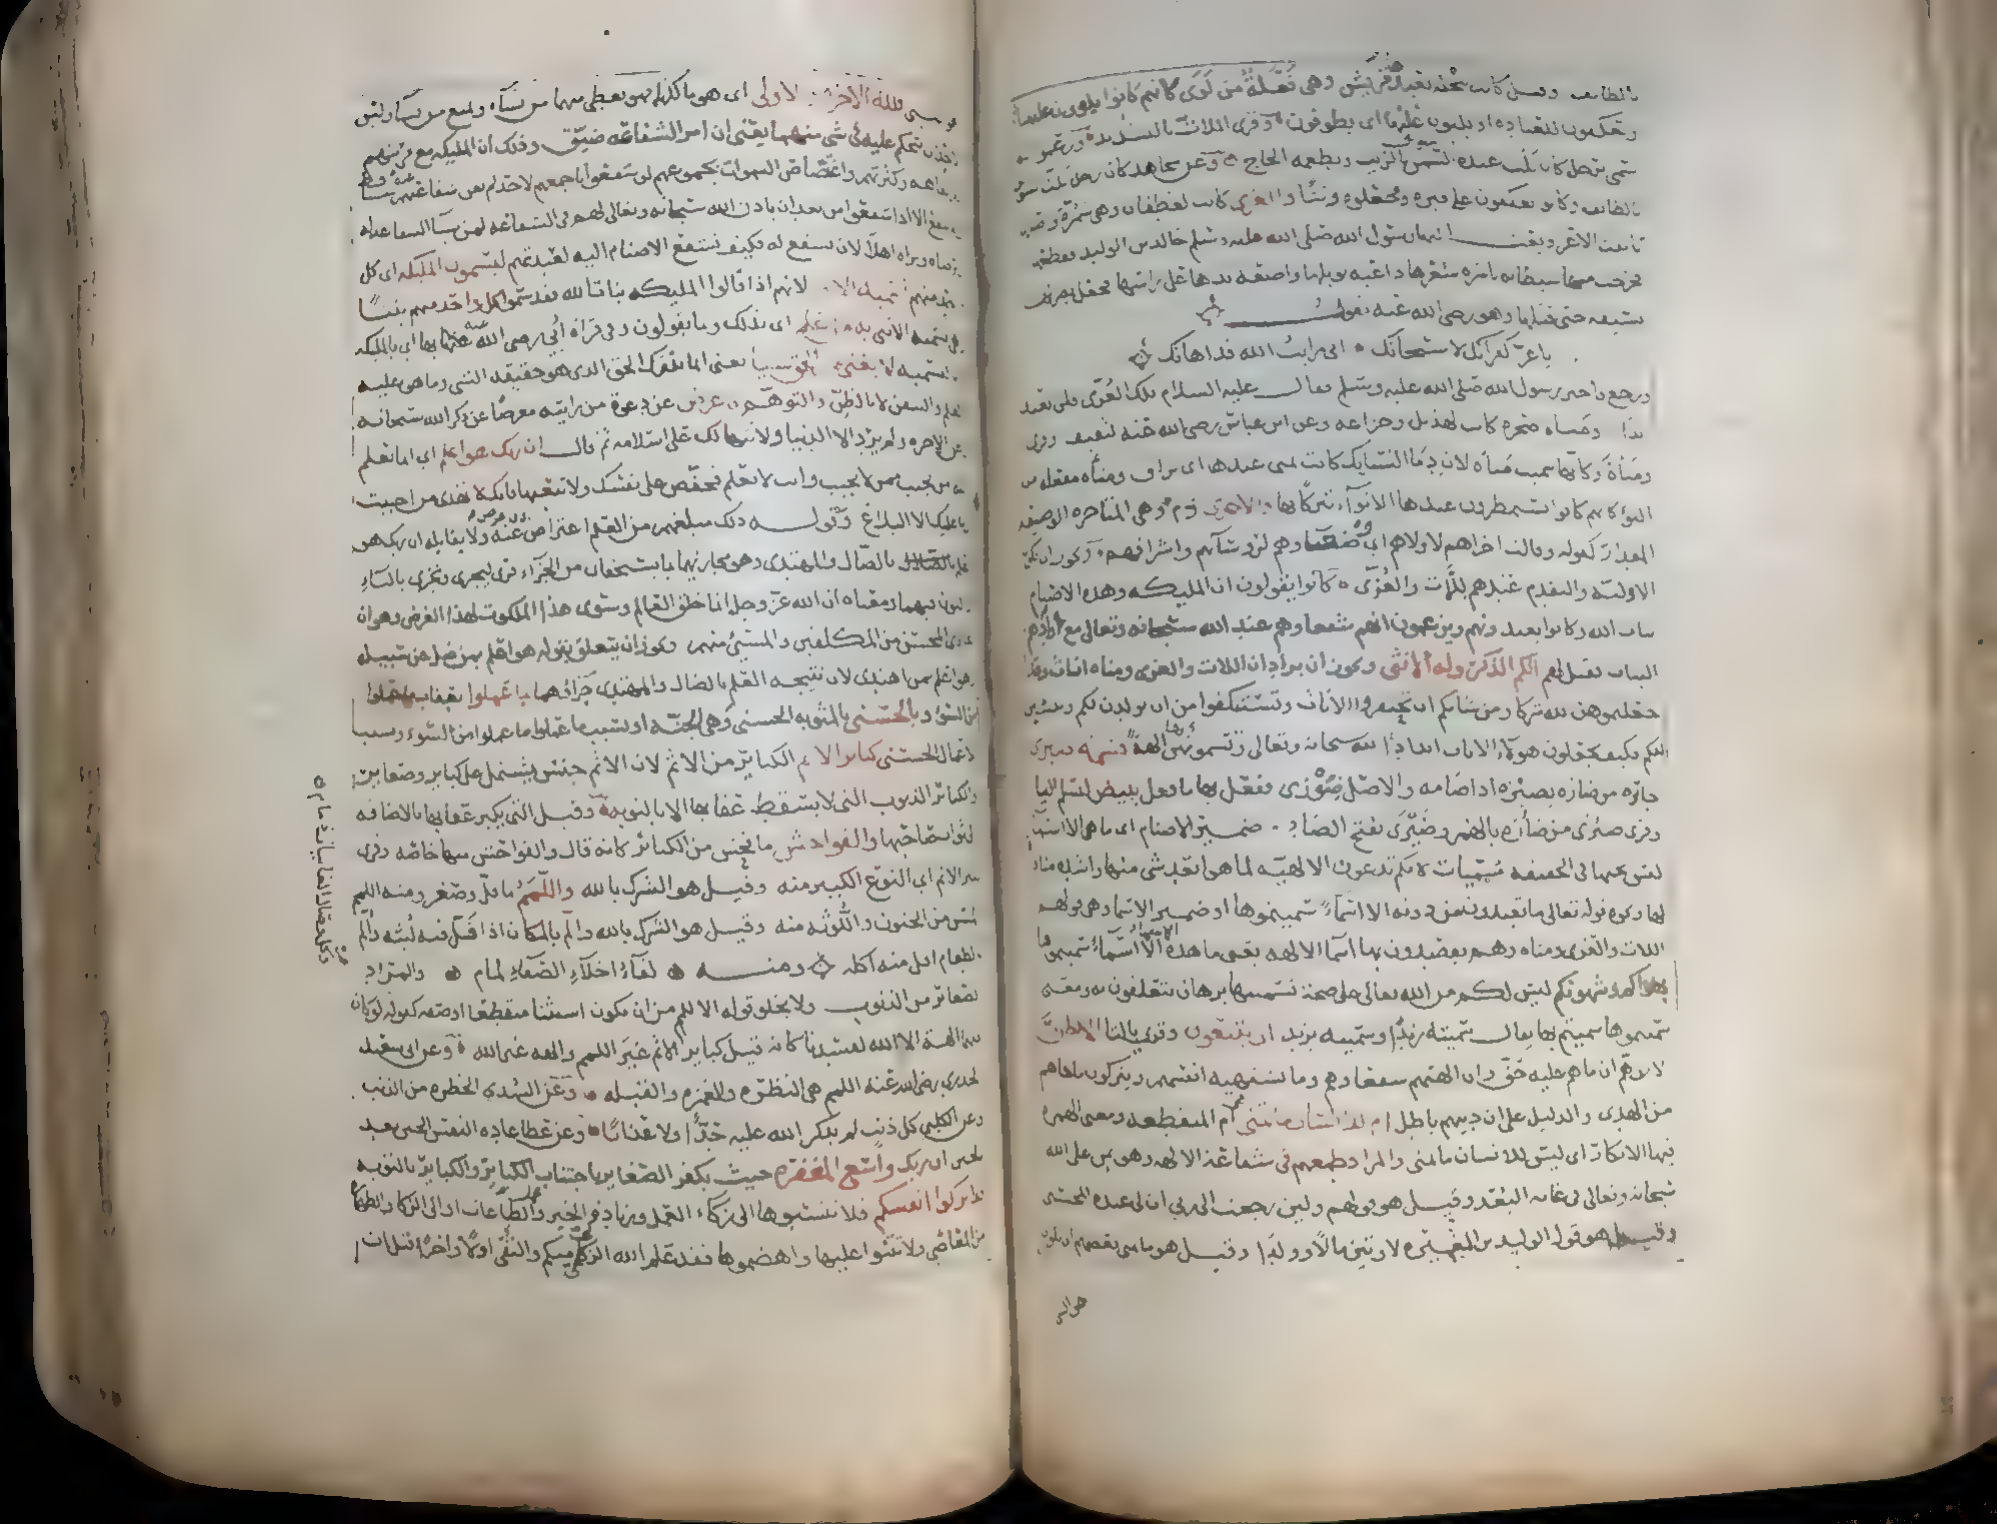 بالطائف وقيل كانت بنخلة تعبدها قريش وهى فَعْلَةٌ من لَوَى كانهم كانوا يلوون عليها
ويعكفون للعبادة او يلتوون عليها اى يطوفون وقرى اللاتّ بالتشديد وزعموا
سمى برجل كان يلت عنده السمن بالزيت ويطعمه الحاج وعن مجاهد كان رجل يلت السويق
بالطائف وكانوا يعكفون على قبره فجعلوه وثنًا والعزى كانت لغطفان وهى سمرة
تانيث الاعز وبعث اليها رسول الله صلى الله عليه وسلم خالد بن الوليد فقطعها
فخرجت منها شيطانة ناشرة شعرها داعية ويلها واضعة يدها على راسها فجعل يضربها
بسيفه حتى قتلها وهو رضى الله عنه يقول
يا عز كفرانك لا سبحانك انى رايت الله قد اهانك
ورجع فاخبر رسول الله صلى الله عليه وسلم فقال عليه السلام تلك العزى ولن تعبد
ابدا ومناة صخرة كانت لهذيل وخزاعة وعن ابن عباس رضى الله عنه لثقيف وقرى
ومناة وكانها سميت مناة لان دماء النسايك كانت تمنى عندها اى تراق ومناة مفعلة من
النوء كانهم كانوا يستمطرون عندها الانواء تبركا بها والاخرى ذم وهى المتاخرة الوضيعة
المقدار كقوله وقالت اخراهم لاولاهم اى وضعاوهم لروسائهم واشرافهم ويجوز ان تكون
الاولية والتقدم عندهم للات والعزى كانوا يقولون ان المليكة وهذه الاصنام
بنات الله وكانوا يعبدونهم ويزعمون انهم شفعاوهم عند الله سبحانه وتعالى مع وادهم
البنات فقيل لهم الكم الذكر وله الانثى ويجوز ان يراد ان اللات والعزى ومناة اناث وقد
جعلتموهن لله شركا ومن شانكم ان تحتقروا الاناث وتستنكفوا من ان يولدن لكم وينسبن
اليكم فكيف تجعلون هولاء الاناث اندادا لله سبحانه وتعالى وتسمونهن الهة قسمة ضيزى
جائرة من ضازه يضيزه اذا ضامه والاصل ضُوْزى ففعل بها ما فعل ببيض لتسلم اليا
وقرى ضئزى من ضأزه بالهمز وضَيْزى بفتح الضاد هى ضمير الاصنام اى ما هى الا اسماء
ليس تحتها فى الحقيقة مسميات لانكم تدعون الالهية لما هو ابعد شى منها واشده منافاة
لها ونحوه قوله تعالى ما تعبدون من دونه الا اسماءً سميتموها او ضمير الاسما وهى قولهم
اللات والعزى ومناة وهم يقصدون بها اسما الالهة يعنى ما هذه الاسماء الا اسماء سميتموها
بهواكم وشهوتكم ليس لكم من الله تعالى على صحة تسميتها برهان تتعلقون به ومعنى
سميتموها سميتم بها يقال سميته زيدًا وسميته بزيد ان يتبعون وقرى بالتا الا الظن
الا توهم ان ما هم عليه حق وان الهتهم شفعاوهم وما تشتهيه انفسهم ويتركون ما جاهم
من الهدى والدليل على ان دينهم باطل ام للانسان ما تمنى ام المنقطعة ومعنى الهمزة
فيها الانكار اى ليس للانسان ما تمنى والمراد طمعهم فى شفاعة الالهة وهو تمن على الله
سبحانه وتعالى فى غاية البعد وقيل هو قولهم ولئن رجعت الى ربى ان لى عنده للحسنى
وقيل هو قول الوليد بن المغيرة لاوتين مالا وولدا وقيل هو تمنى بعضهم ان يكون
هو النبى
هو النبى فلله الاخرة والاولى اى هو مالكهما فهو يعطى منهما من يشاء ويمنع من يشاء وليس
لاحد ان يتحكم عليه فى شى منهما يعنى ان امر الشفاعة ضيّق وذلك ان المليكة مع قربتهم
وزلفاهم وكثرتهم واغتصاص السموات بجموعهم لو شفعوا باجمعهم لاحد لم تغن شفاعتهم عنه شيا
ولم تنفع الا اذا شفعوا من بعد ان ياذن الله سبحانه وتعالى لهم فى الشفاعة لمن يشا الشفاعة له
ويرضاه ويراه اهلا لان يشفع له فكيف تشفع الاصنام اليه لعبدتهم ليسمون المليكة اى كل
واحد منهم تسمية الانثى لانهم اذا قالوا المليكة بنات الله فقد سموا كل واحد منهم بنتًا
وهى تسمية الانثى به من علم اى بذلك وما يقولون وفى قراة أبى رضى الله عنه بها اى بالمليكة
او التسمية لا يغنى من الحق شيا يعنى انما يدرك الحق الذى هو حقيقة الشى وما هو عليه
بالعلم والتيقن لا بالظن والتوهم فاعرض عن دعوة من رايته معرضًا عن ذكر الله سبحانه
وعن الاخرة ولم يرد الا الدنيا ولا تتهالك على اسلامه ثم قال ان ربك هو اعلم اى انما يعلم
الله من يجيب ممن لا يجيب وانت لا تعلم فخفض على نفسك ولا تتعبها فانك لا تهدى من احببت
وما عليك الا البلاغ وقوله ذلك مبلغهم من العلم اعتراض او فاعرض عنه ولا تقابله ان ربك هو
اعلم بالضال والمهتدى وهو مجازيهما بما يستحقان من الجزاء قرى ليجزى ويجزى بالياء
والنون فيهما ومعناه ان الله عز وجل انما خلق العالم وسوى هذا الملكوت لهذا الغرض وهو ان
يجازى المحسن من المكلفين والمسيئ منهم ويجوز ان يتعلق بقوله هو اعلم بمن ضل عن سبيله
وهو اعلم بمن اهتدى لان نتيجة العلم بالضال والمهتدى جزاؤهما بما عملوا بعقاب ما عملوا
من السوء وبالحسنى بالمثوبة الحسنى وهى الجنة او بسبب ما عملوا من السوء وبسبب
الاعمال الحسنى كبائر الاثم الكبائر من الاثم لان الاثم جنس يشتمل على كبائر وصغائر
والكبائر الذنوب التى لا يسقط عقابها الا بالتوبة وقيل التى يكبر عقابها بالاضافة
الى ثواب صاحبها والفواحش ما فحش من الكبائر كانه قال والفواحش منها خاصة وقرى
كبير الاثم اى النوع الكبير منه وقيل هو الشرك بالله واللمم ما قل وصغر ومنه اللمم
المس من الجنون واللوثة منه وقيل هو الشرك بالله وألم بالمكان اذا قل فيه لبثه وألم
بالطعام قل منه اكله ومنه لقاءُ اخلاءِ الصفاءِ لمام والمراد
الصغائر من الذنوب ولا يخلو قوله الا اللمم من ان يكون استثنا منقطعا او صفة كقوله لو كان
فيهما الهة الا الله لفسدتا كانه قيل كبائر الاثم غير اللمم والهة غير الله وعن ابى سعيد
الخدرى رضى الله عنه اللمم هى النظرة والغمزة والقبلة وعن السدى الخطرة من الذنب
وعن الكلبى كل ذنب لم يذكر الله عليه حدّا ولا عذابًا وعن عطا عادة النفس الحين بعد
الحين ان ربك واسع المغفرة حيث يكفر الصغائر باجتناب الكبائر والكبائر بالتوبة
فلا تزكوا انفسكم فلا تنسبوها الى زكاء العمل وزيادة الخير وعمل الطاعات او الى الزكاء والطهارة
من المعاصى ولا تثنوا عليها واهضموها فقد علم الله الزكى منكم والتقى اولًا واخرًا قبل ان
وكل وصال الغانيات ذمام